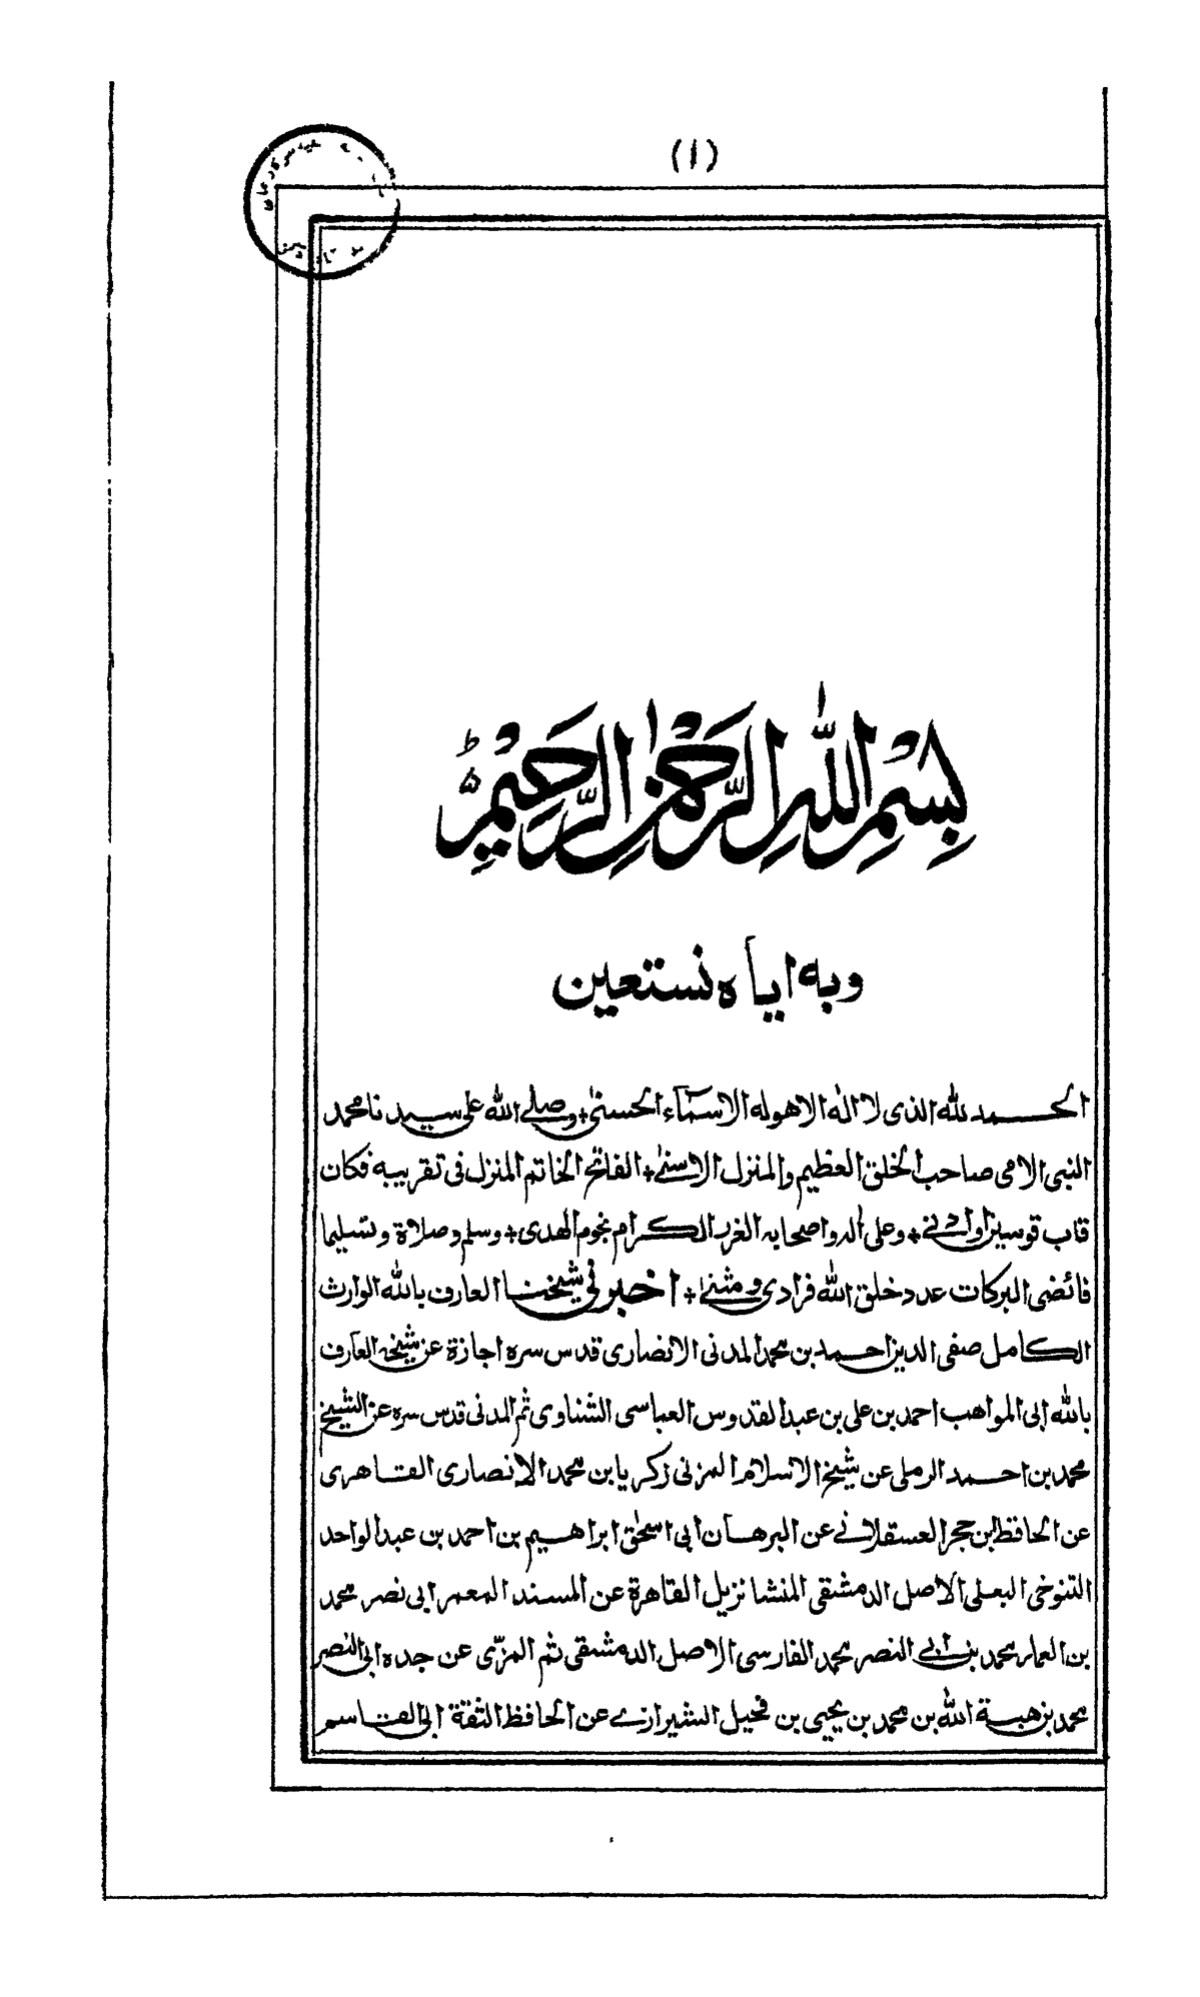 (١)
بِسْمِ اللّٰهِ الرَّحْمٰنِ الرَّحِيْمِ ط
وبه اياه نستعين
الحمد لله الذى لا اله الا هو له الاسمآء الحسنىٰ + وصلے الله على سيدنا محمد
النبى الامى صاحب الخلق العظيم والمنزل الاسنىٰ + الفاتح الخاتم المنزل فى تقريبه فكان
قاب قوسين او ادنے + وعلى اله واصحابه الغر الكرام نجوم الهدى + وسلم وصلاة وتسليما
فائضى البركات عدد خلق الله فرادى ومثنىٰ + اخبرنى شيخنا العارف بالله الوارث
الكامل صفى الدين احمد بن محمد المدنى الانصارى قدس سره اجازة عن شيخه العارف
بالله ابى المواهب احمد بن على بن عبد القدوس العباسى الشناوى ثم المدنى قدس سره عن الشيخ
محمد بن احمد الرملى عن شيخ الاسلام المزنى زكريا بن محمد الانصارى القاهرى
عن الحافظ ابن حجر العسقلانے عن البرهان ابى اسحٰق ابراهيم بن احمد بن عبد الواحد
التنوخى البعلى الاصل الدمشقى المنشا نزيل القاهرة عن المسند المعمر ابى نصر محمد
بن العماد محمد بن ابے النصر محمد الفارسى الاصل الدمشقى ثم المزّى عن جده ابى النصر
محمد بن هبة الله بن محمد بن يحيى بن فحيل الشيرازے عن الحافظ الثقة ابى القاسم